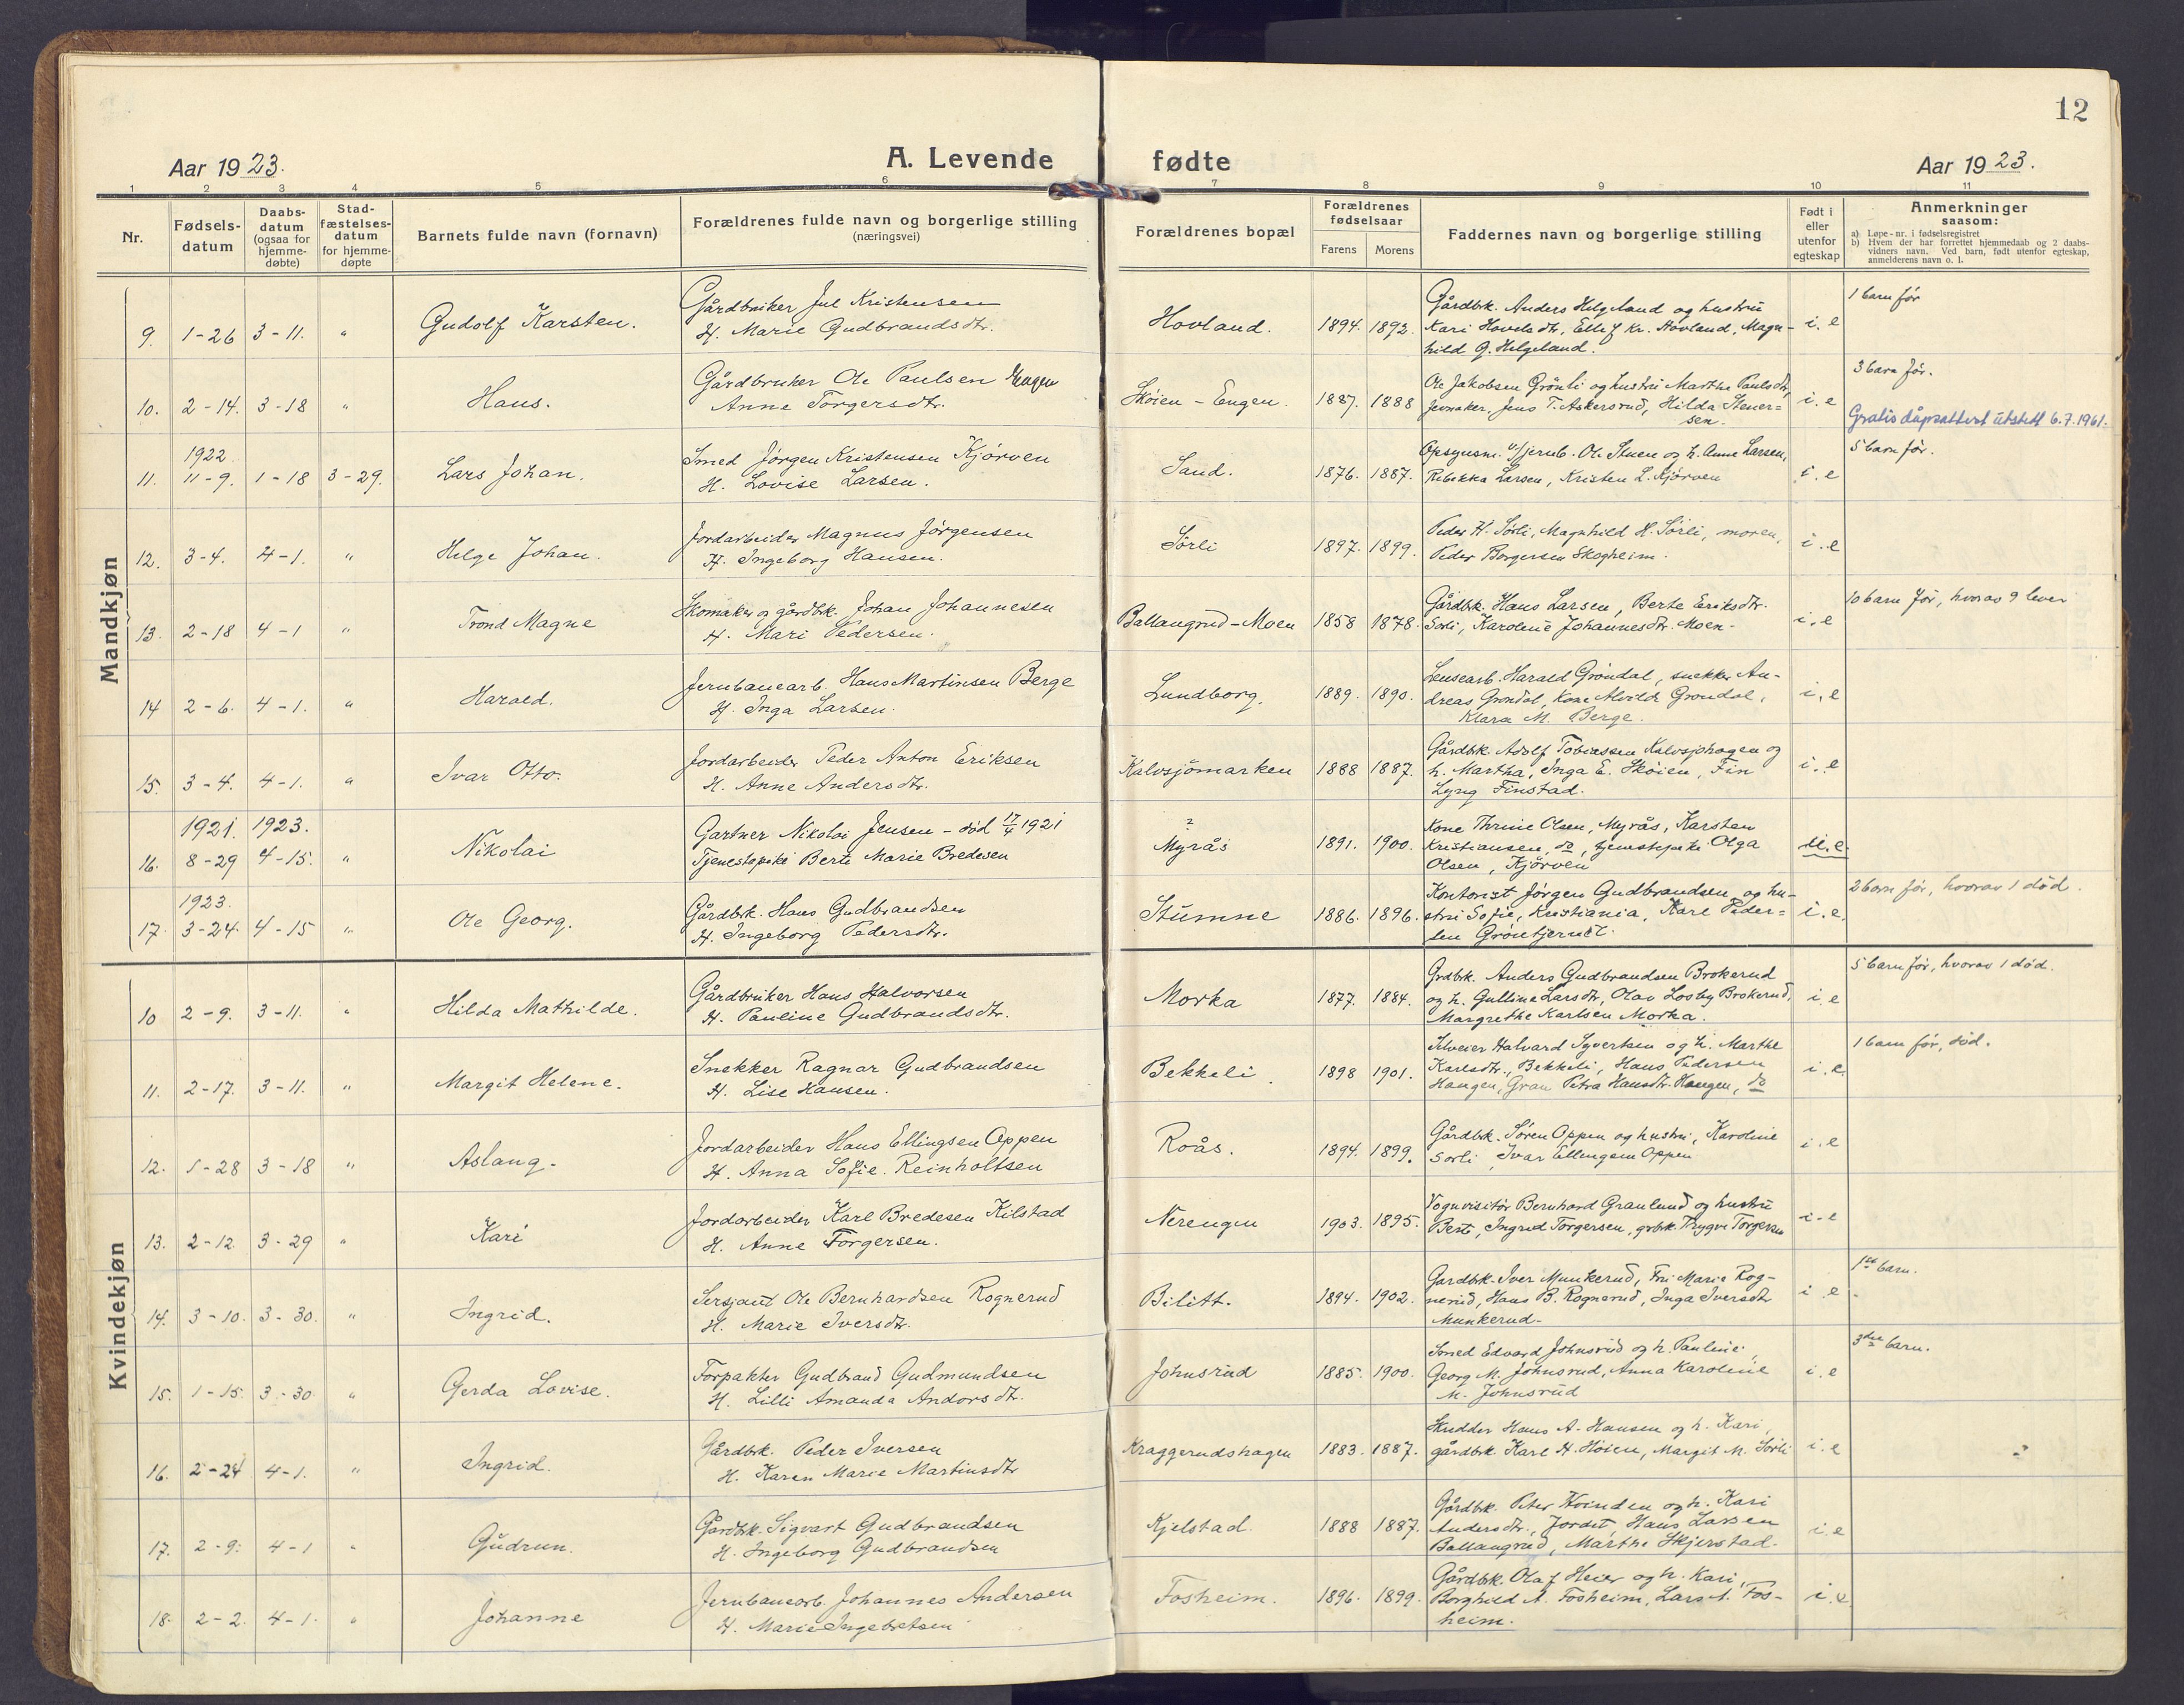 12
Aar 1923.
A. Levende fødte
Aar 1923.
1 2 3 4 5 6 7 8 9 10 11
Nr.
Fødsels-
datum
Daabs-
datum
(ogsaa for
hjemme-
døbte)
Stad-
fæstelses-
datum
for hjemme-
døpte
Barnets fulde navn (fornavn)
Forældrenes fulde navn og borgerlige stilling
(næringsvei)
Forældrenes bopæl
Forældrenes
fødselsaar
Farens Morens
Faddernes navn og borgerlige stilling
Født i
eller
utenfor
egteskap
Anmerkninger
saasom:
a) Løpe-nr. i fødselsregistret
b) Hvem der har forrettet hjemmedaab og 2 daabs-
vidners navn. Ved barn, født utenfor egteskap,
anmelderens navn o. l.
Mandkjøn
9. 1-26 3-11. " Gudolf Karsten.
Gårdbruker Jul Kristensen
H. Marie Gudbrandsdtr.
Hovland. 1894. 1892.
Gårdbk. Anders Helgeland og hustru
Kari Hovelsdtr, Ellef Kr. Hovland, Magn-
hild G. Helgeland.
i. e
1 barn før
10. 2-14. 3-18 " Hans.
Gårdbruker Ole Paulsen Engen
Anne Torgersdtr.
Skøien - Engen. 1887. 1888
Ole Jakobsen Grønli og hustru Marthe Paulsdtr,
Jevnaker, Jens T. Askersrud, Hilda Stener=
sen.
i. e
3 barn før.
Gratis dåpsattest utstedt 6.7.1961.
1922.
11. 11-9. 1-18 3-29. Lars Johan.
Smed Jørgen Kristensen Kjørven
H. Lovise Larsen.
Sand. 1876. 1887.
Opsynsm. v/jernb. Ole Stuen og h. Anne Larsen,
Rebekka Larsen, Kristen L. Kjørven
i. e
5 barn før.
12. 3-4. 4-1. " Helge Johan.
Jordarbeider Magnus Jørgensen
H. Ingeborg Hansen.
Sørli 1897. 1899.
Peder H. Sørli, Magnhild H. Sørli, moren,
Peder Borgersen Skogheim.
i. e
13. 2-18 4-1 " Trond Magne
Skomaker og gårdbk. Johan Johannesen
H. Mari Pedersen.
Ballangrud-Moen 1858 1878.
Gårdbk. Hans Larsen, Berte Eriksdtr.
Sørli, Karoline Johannesdtr. Moen-
i. e
10 barn før, hvorav 9 lever
14 2-6. 4-1. " Harald.
Jernbanearb. Hans Martinsen Berge
H. Inga Larsen.
Lundborg. 1889. 1890.
Lensearb. Harald Grøndal, snekker An-
dreas Grøndal, kone Alvilde Grøndal,
Klara M. Berge.
i. e
15. 3-4. 4-1. " Ivar Otto.
Jordarbeider Peder Anton Eriksen
H. Anne Andersdtr.
Kalvsjømarken 1888 1887.
Gårdbk. Adolf Tobiassen Kalvsjøhagen og
h. Martha, Inga E. Skøien, Fin
Lyng Finstad.
i. e
1921. 1923.
16. 8-29 4-15. " Nikolai
Gartner Nikolai Jensen - død 17/4 1921
Tjenestepike Berte Marie Bredesen
?
Myrås 1891. 1900.
Kone Thrine Olsen, Myrås, Karsten
Kristiansen, do, tjenestepike Olga
Olsen, Kjørven
u. e.
1923.
17. 3-24. 4-15 " Ole Georg.
Gårdbk. Hans Gudbrandsen
H. Ingeborg Pedersdtr.
Stumne 1886. 1896.
Kontorist Jørgen Gudbrandsen og hu-
stru Sofie, Kristiania, Karl Peder=
sen Grøntjernet.
i. e.
2 barn før, hvorav 1 død.
Kvindekjøn
10 2-9. 3-11. " Hilda Mathilde.
Gårdbruker Hans Halvorsen
H. Pauline Gudbrandsdtr.
Morka 1877. 1884.
Grdbk. Anders Gudbrandsen Brokerud
og h. Gulline Larsdtr, Olav Losby Brokerud,
Margrethe Karlsen Morka.
i. e
5 barn før, hvorav 1 død.
11. 2-17. 3-11. " Margit Helene.
Snekker Ragnar Gudbrandsen
H. Lise Hansen.
Bekkeli. 1898 1901.
Halvard Syvertsen og h. Marthe
Karlsdtr., Bekkeli, Hans Pedersen
Haugen, Gran Petra Hansdtr. Haugen, do
i. e.
1 barn før, død.
12. 1-28 3-18 " Aslaug.
Jordarbeider Hans Ellingsen Oppen
H. Anna Sofie Reinholtsen
Roås. 1894. 1899.
Gårdbk. Søren Oppen og hustru, Karoline
Sorli, Ivar Ellingsen Oppen
i. e
13. 2-12. 3-29 " Kari
Jordarbeider Karl Bredesen Kilstad
H. Anne Torgersen.
Nerengen 1903. 1895.
Vognvisitør Bernhard Granlund og hustru
Berte, Ingrid Torgersen, grbk. Trygve Torgersen
i. e
14. 3-10. 3-30. " Ingrid.
Sersjant Ole Bernhardsen Rognerud
H. Marie Iversdtr.
Bilitt. 1894. 1902.
Gardbk. Iver Munkerud, Fru Marie Rog-
nerud, Hans B. Rognerud, Inga Iversdtr
Munkerud-
i. e.
1ste barn.
15. 1-15. 3-30. " Gerda Lovise.
Forpakter Gudbrand Gudmundsen
H. Lilli Amanda Andorsdtr.
Johnsrud 1885. 1900.
Smed Edvard Johnsrud og h. Pauline,
Georg M. Johnsrud, Anna Karoline
M. Johnsrud
i. e
3die barn.
16. 2-24 4-1. " Ingrid.
Gårdbk. Peder Iversen
H. Karen Marie Martinsdtr
Kraggerudshagen 1883. 1887.
Skredder Hans A. Hansen og h. Kari,
gårdbk. Karl H. Høien, Margit M. Sørli
i. e
17. 2-9. 4-1 " Gudrun.
Gårdbk. Sigvart Gudbrandsen
H. Ingeborg Gudbrandsen
Kjelstad. 1888 1887.
Gårdbk. Peter Kvinden og h. Kari
Andersdtr., Jordet, Hans Larsen
Ballangrud, Marthe Skjerstad.
i. e
18. 2-2. 4-1. " Johanne
Jernbanearb. Johannes Andersen
H. Marie Ingebretsen
Fosheim. 1896. 1899.
Gårdbk. Olaf Heier og h. Kari,
Borghild A. Fosheim, Lars A. Fos-
heim.
i. e